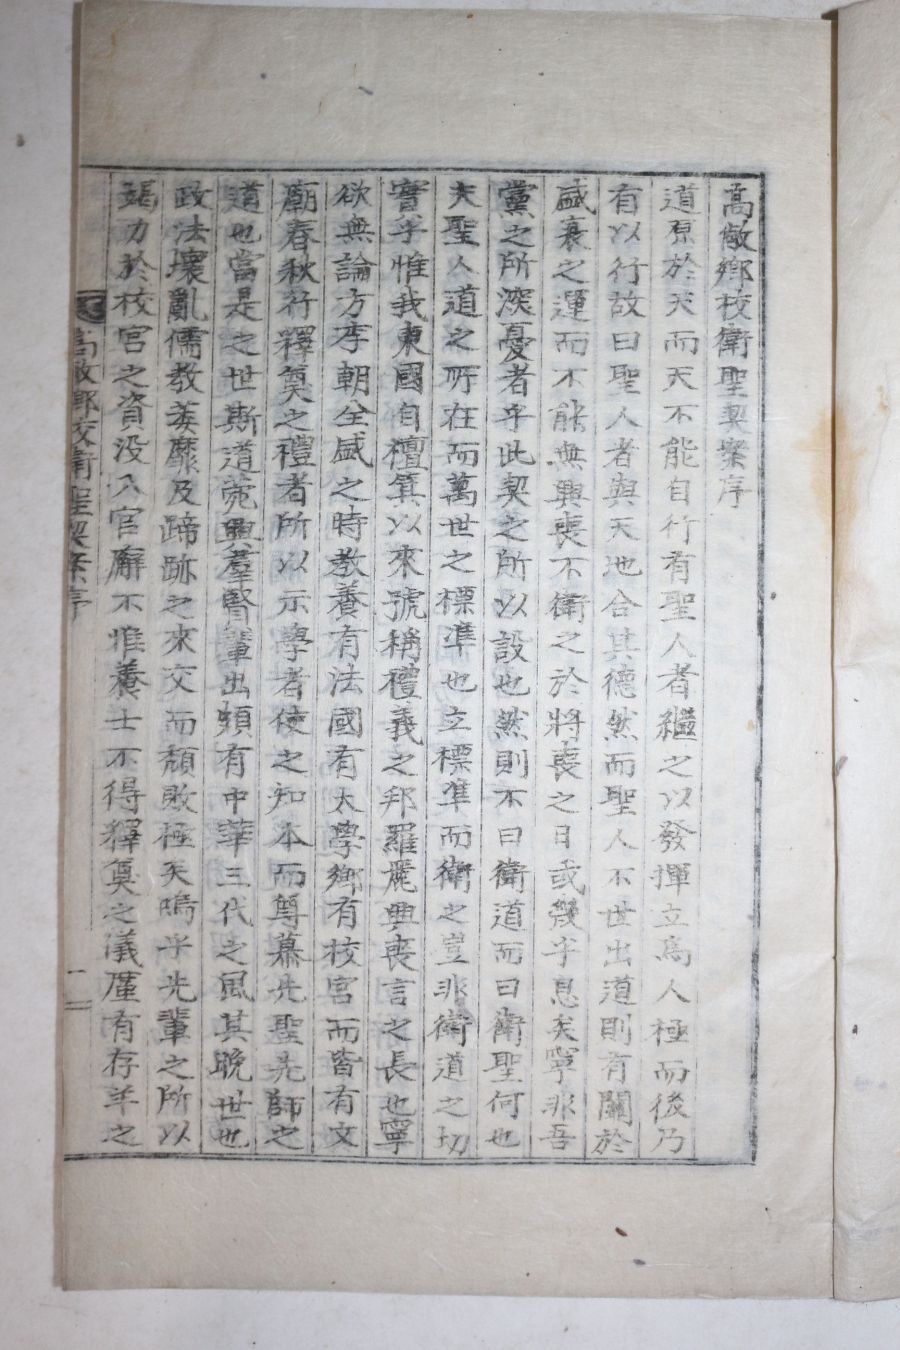 高敞鄉校衛聖契案序
道原於天而天不能自行有聖人者繼之以發揮立爲人極而後乃
有以行故曰聖人者與天地合其德然而聖人不世出道則有關於
盛衰之運而不能無興喪不衛之於將喪之日或幾乎息矣寧非吾
黨之所深憂者乎此契之所以設也然則不曰衛道而曰衛聖何也
夫聖人道之所在而萬世之標準也立標準而衛之豈非衛道之切
實乎惟我東國自檀箕以來號稱禮義之邦羅麗典喪言之長也寧
欲無論方李朝全盛之時教養有法國有太學鄉有校宮而皆有文
廟春秋行釋奠之禮者所以示學者使之知本而尊慕先聖先師之
道也當是之世斯道蔚興羣賢輩出頗有中華三代之風其晚世也
政法壞亂儒教萎靡及蹄跡之來交而頹敗極矣嗚乎先輩之所以
竭力於校宮之資沒入官廨不惟養士不得釋奠之儀厪有存羊之
高敞鄉校衛聖契案序
一